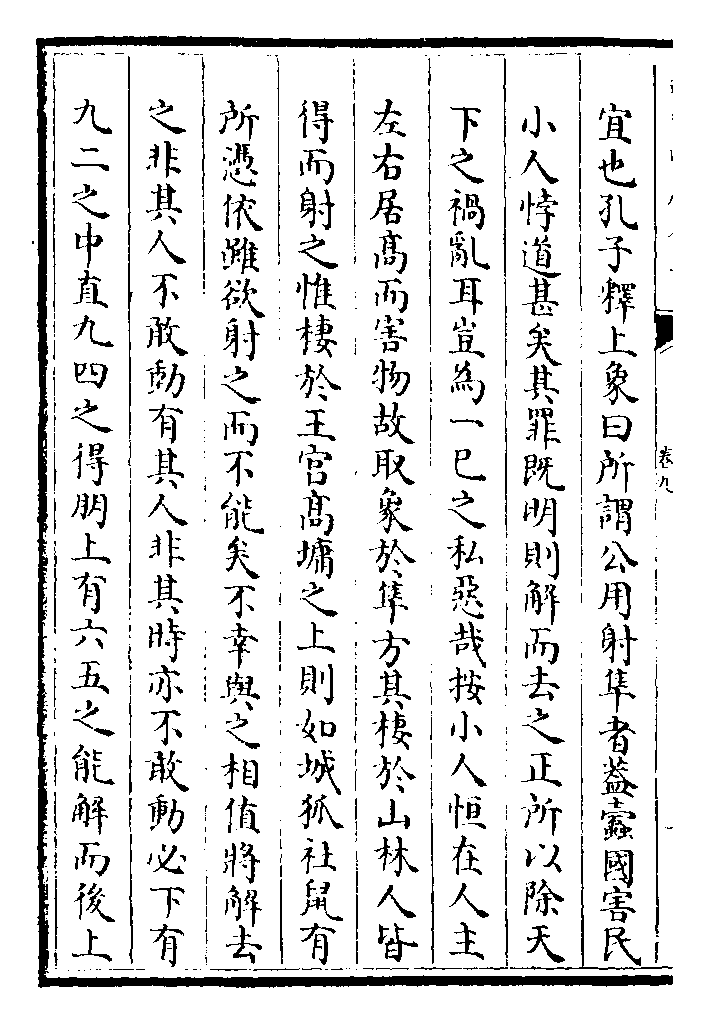 宜也孔子釋上象曰所謂公用射隼者葢蠧國害民
小人悖道甚矣其罪既明則解而去之正所以除天
下之禍亂耳豈為一已之私惡哉按小人恒在人主
左右居髙而害物故取象於隼方其棲於山林人皆
得而射之惟棲於王宫髙墉之上則如城狐社鼠有
所憑依雖欲射之而不能矣不幸與之相值將解去
之非其人不敢動有其人非其時亦不敢動必下有
九二之中直九四之得朋上有六五之能解而後上
卷九